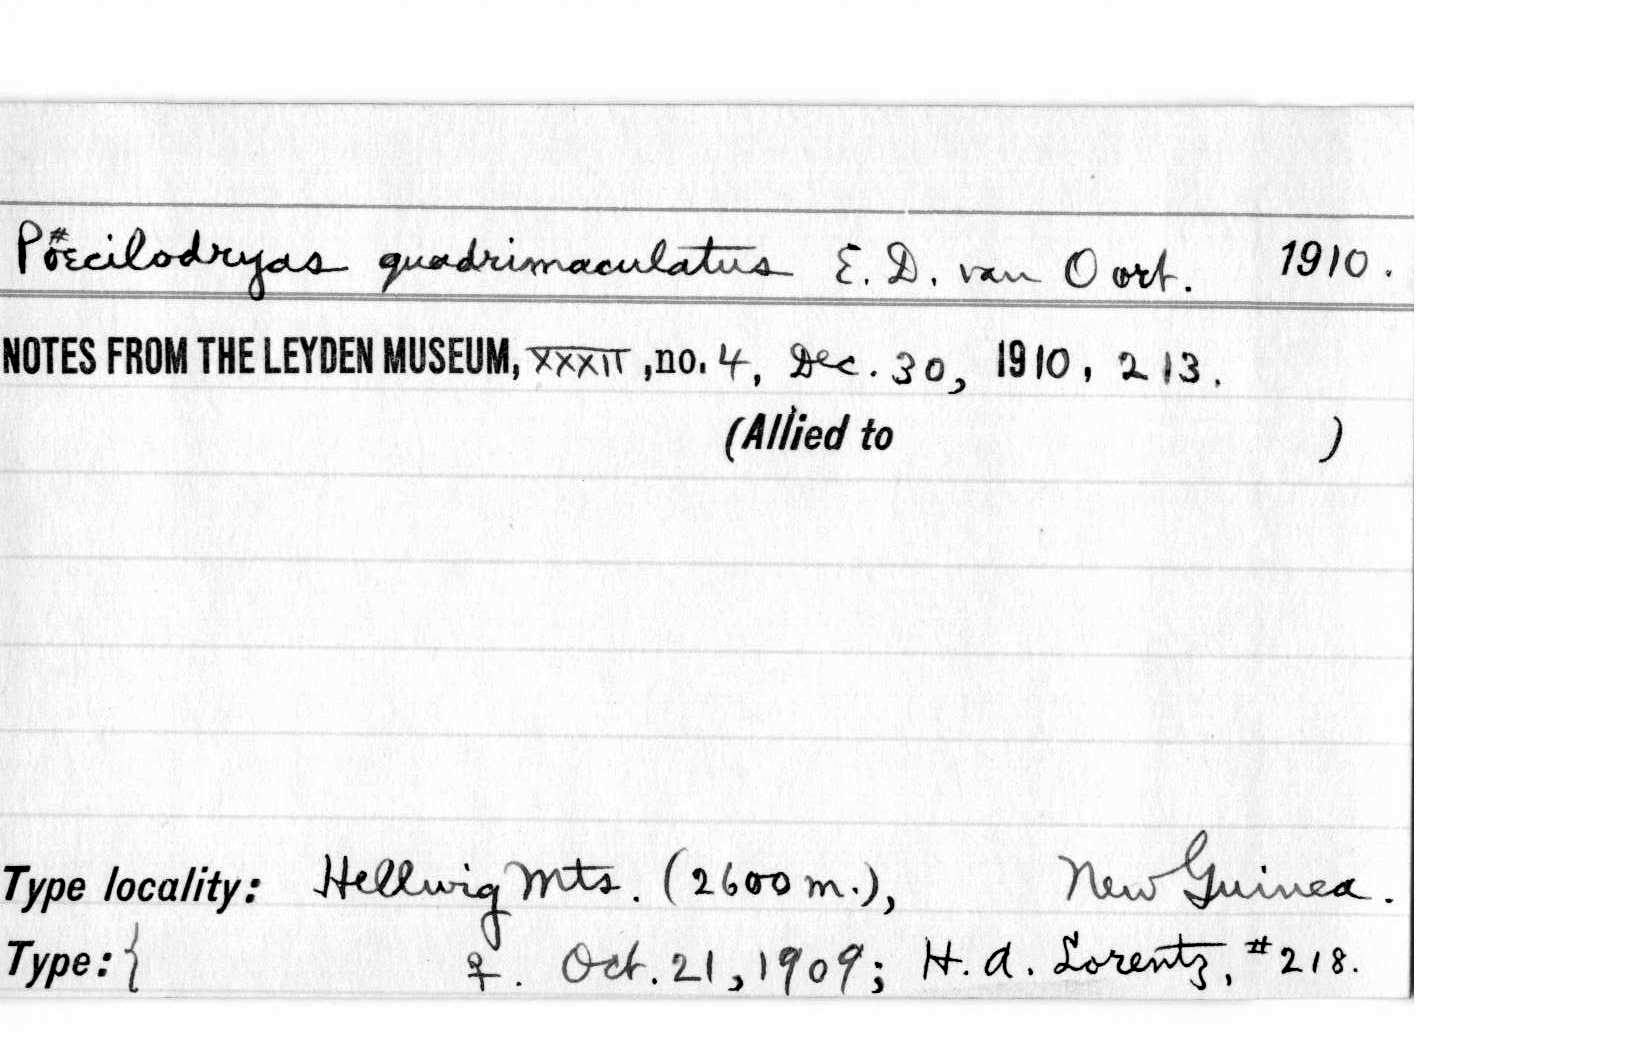 Poecilodryas quadrimaculatus E. D. van Oort. 1910.
NOTES FROM THE LEYDEN MUSEUM, XXXII, no. 4, Dec. 30, 1910, 213.
(Allied to )
Type locality: Hellwig Mts. (2600 m.), New Guinea.
Type: { ♀. Oct. 21, 1909; H. A. Lorentz, #218.